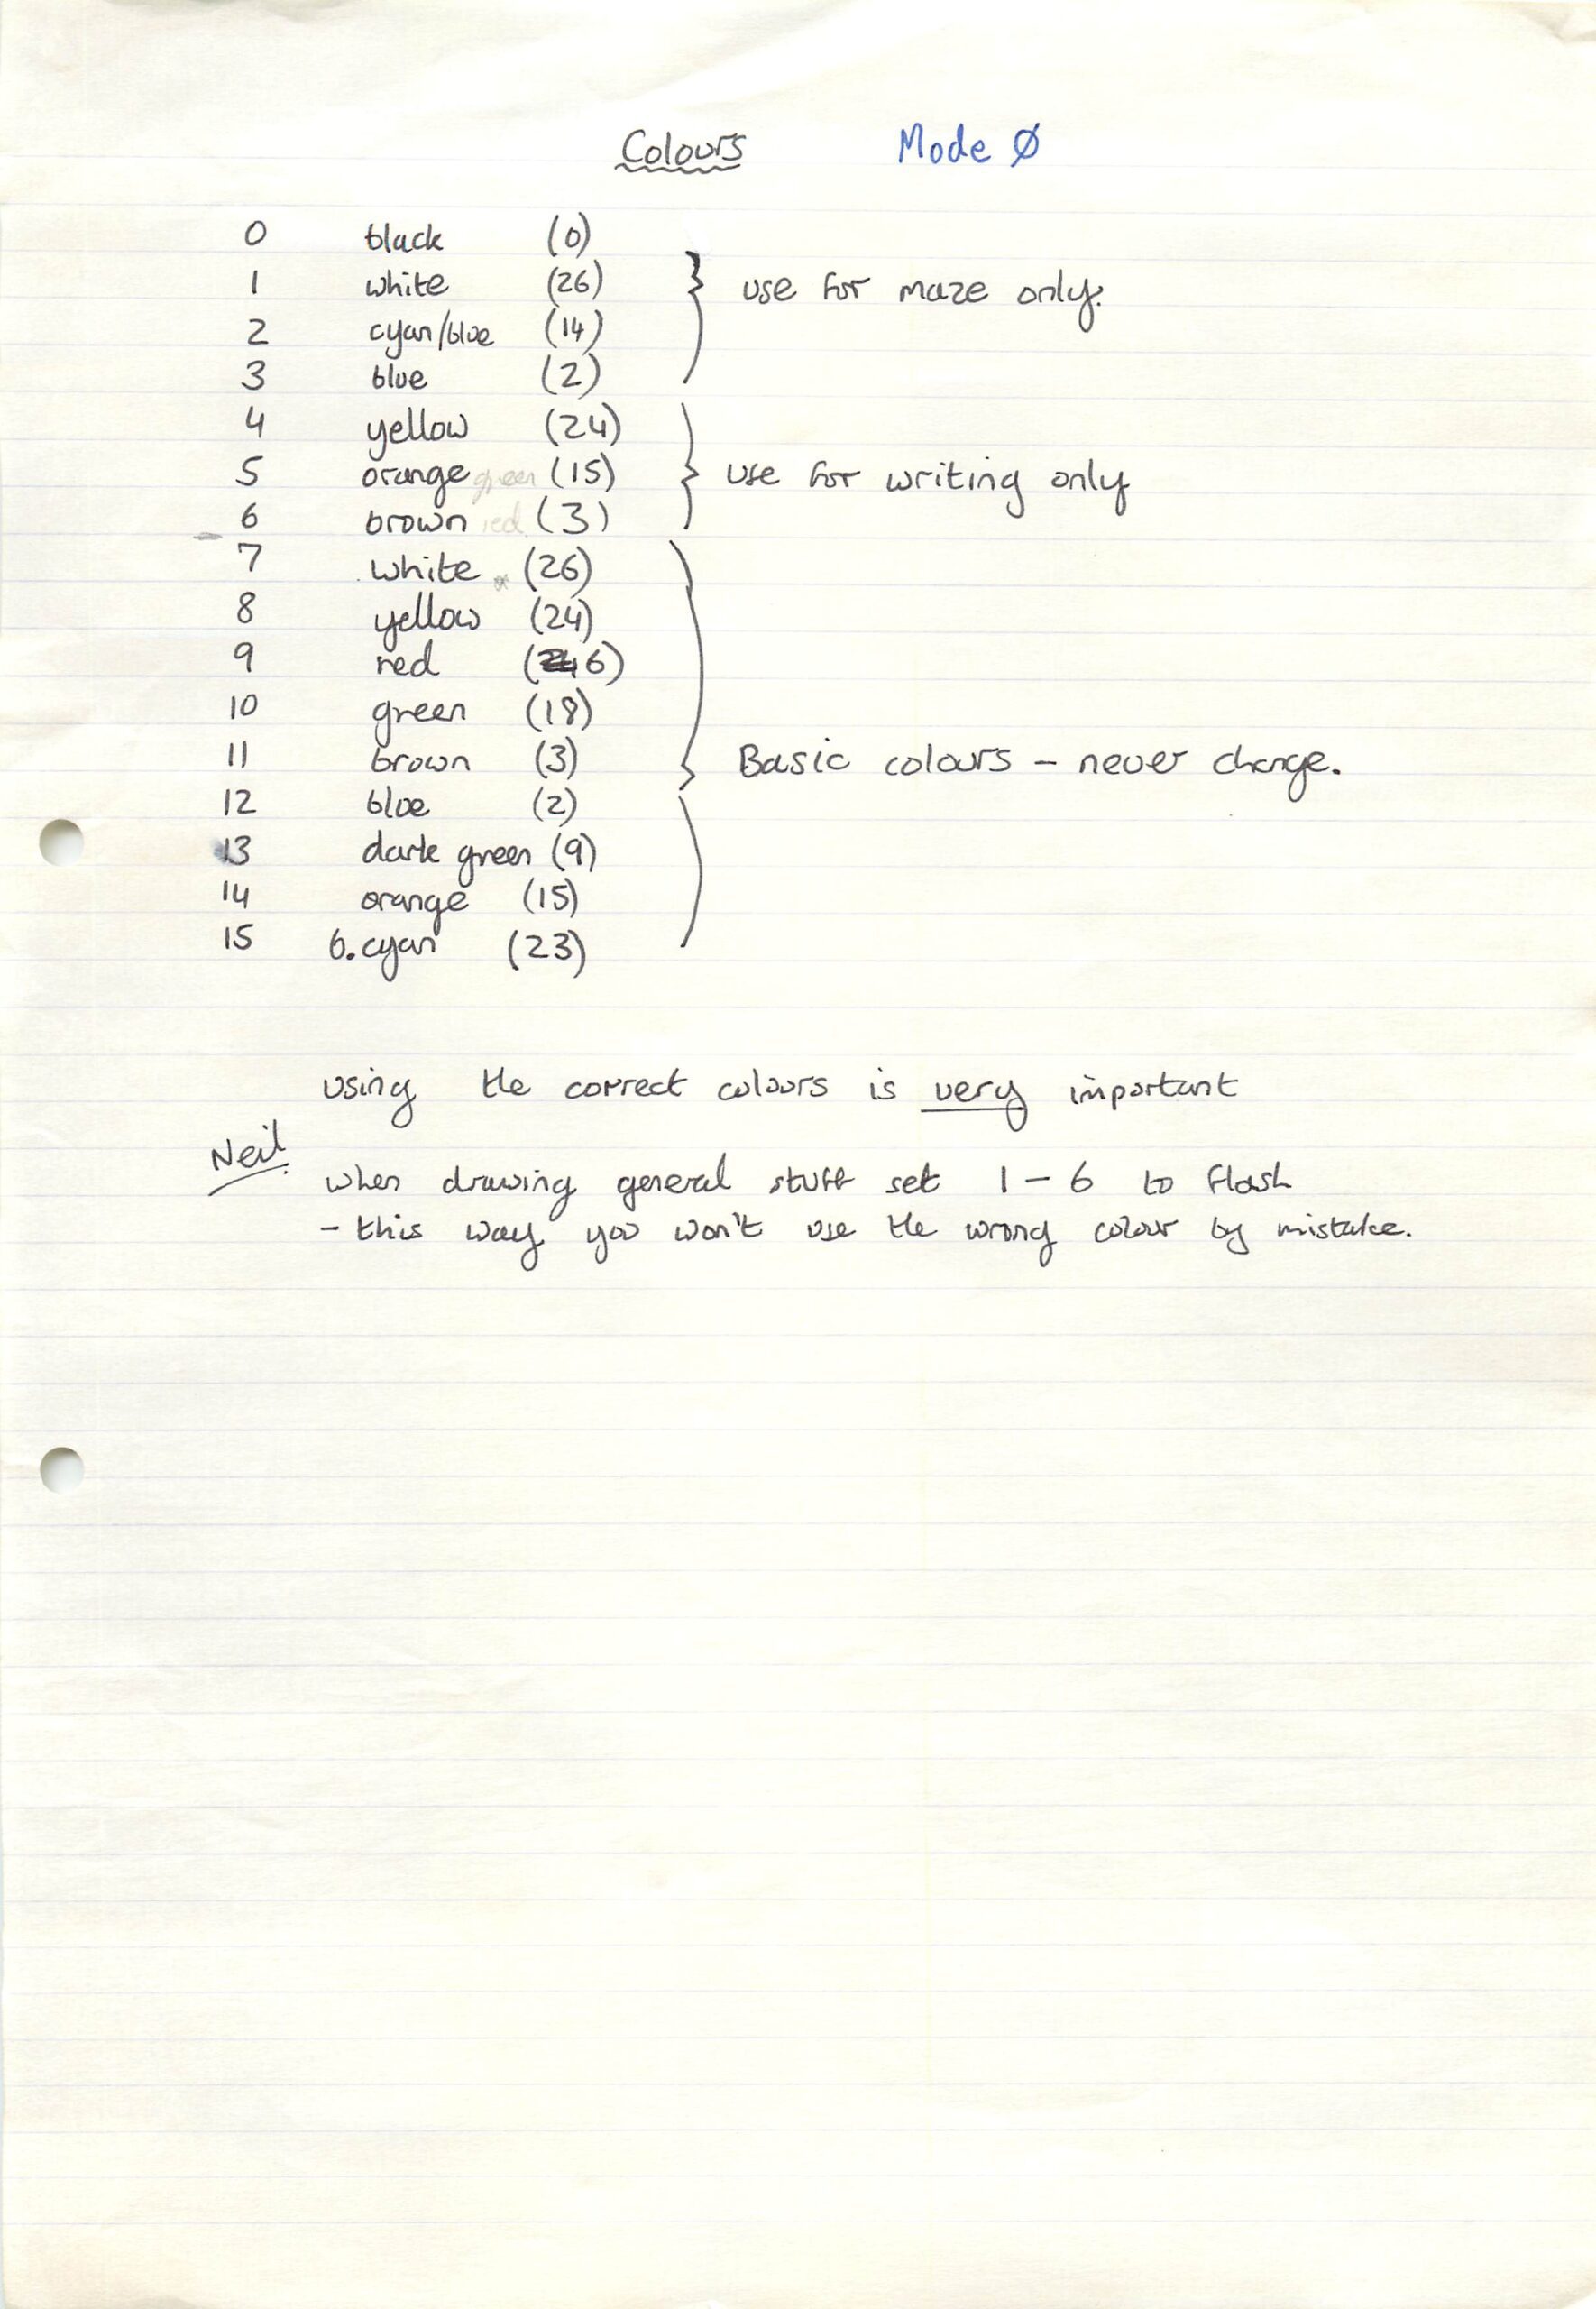 Colours Mode Ø
0 black (0)
1 white (26)
use for maze only.
2 cyan/blue (14)
3 blue (2)
4 yellow (24)
5 orange green (15) use for writing only
6 brown red (3)
7 white (26)
8 yellow (24)
9 red (6)
10 green (18)
11 brown (3) Basic colours - never change.
12 blue (2)
13 dark green (9)
14 orange (15)
15 b.cyan (23)
using the correct colours is very important
Neil
when drawing general stuff set 1-6 to flash
- this way you won't use the wrong colour by mistake.